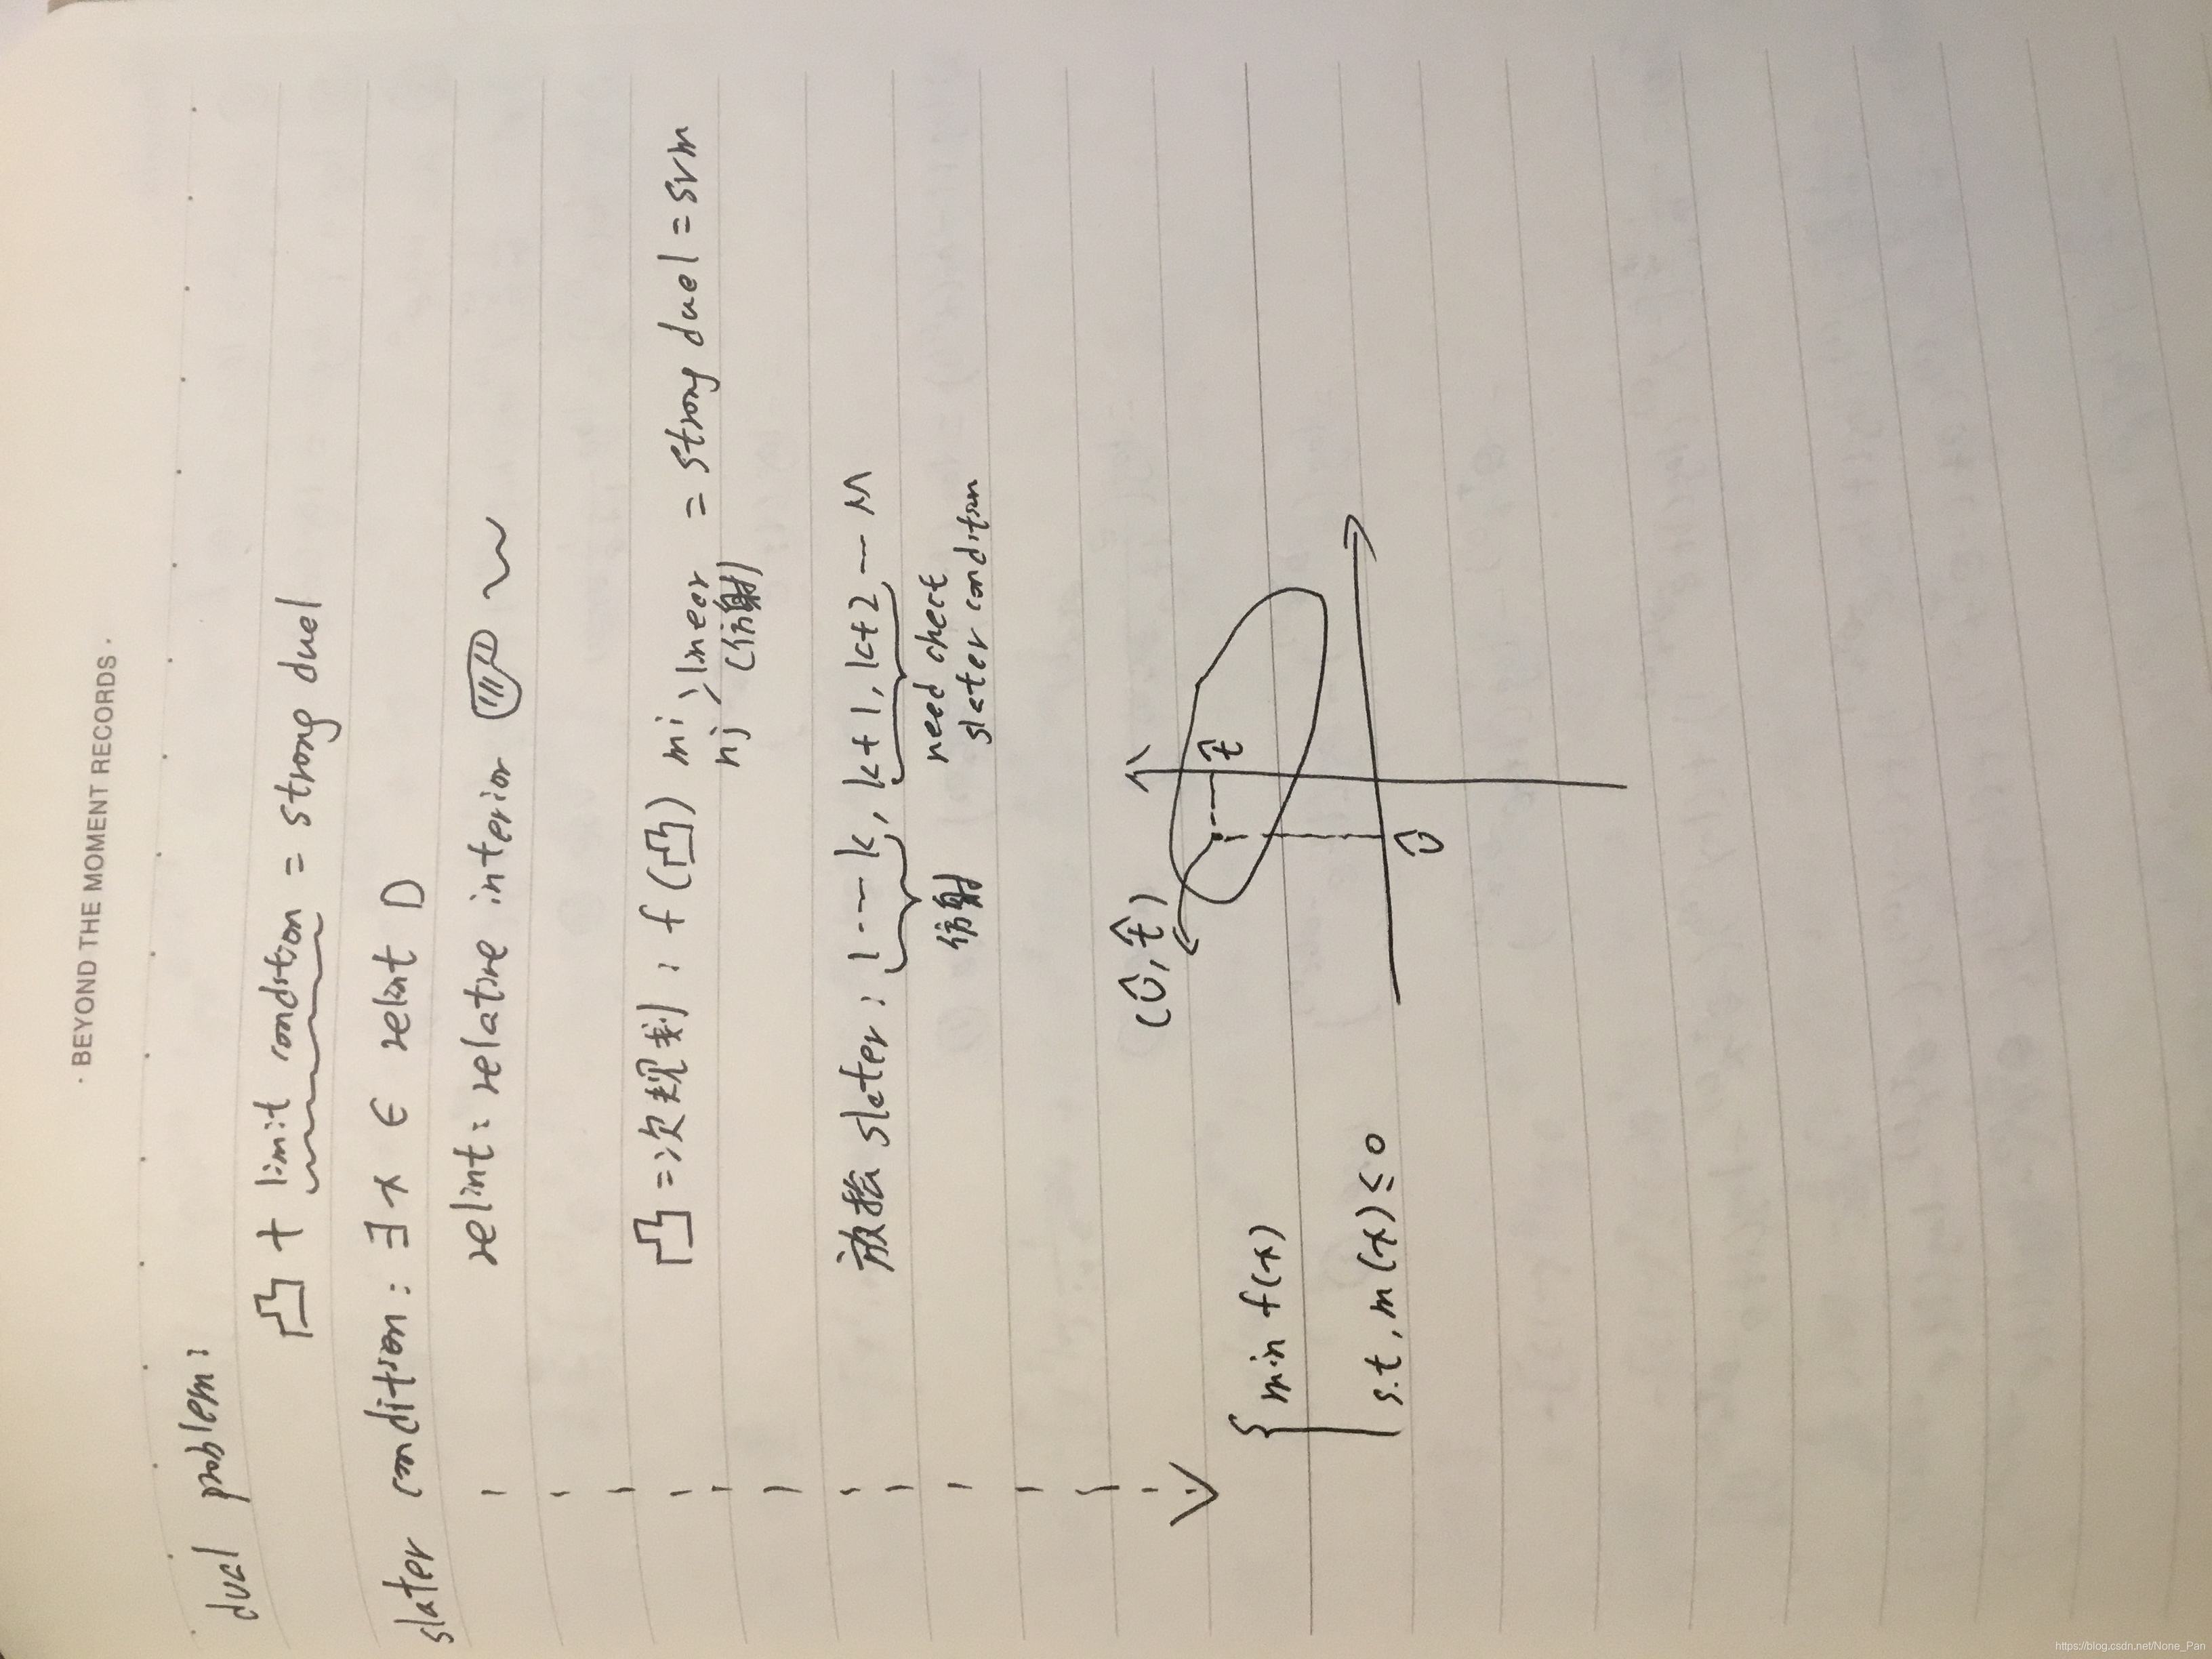 · BEYOND THE MOMENT RECORDS ·
dual problem:
凸 + limit condition = strong duel
slater condition: ∃ x ∈ relint D
relint: relative interior
凸二次规划: f(凸) mi nj > lineer = strong duel = svm
(仿射)
放松 slater: 1 --- k, k+1, k+2 --- M
仿射 need chect
slater condition
(û, t̂)
t̂
û
min f(x)
s.t, m(x) ≤ 0
https://blog.csdn.net/None_Pan